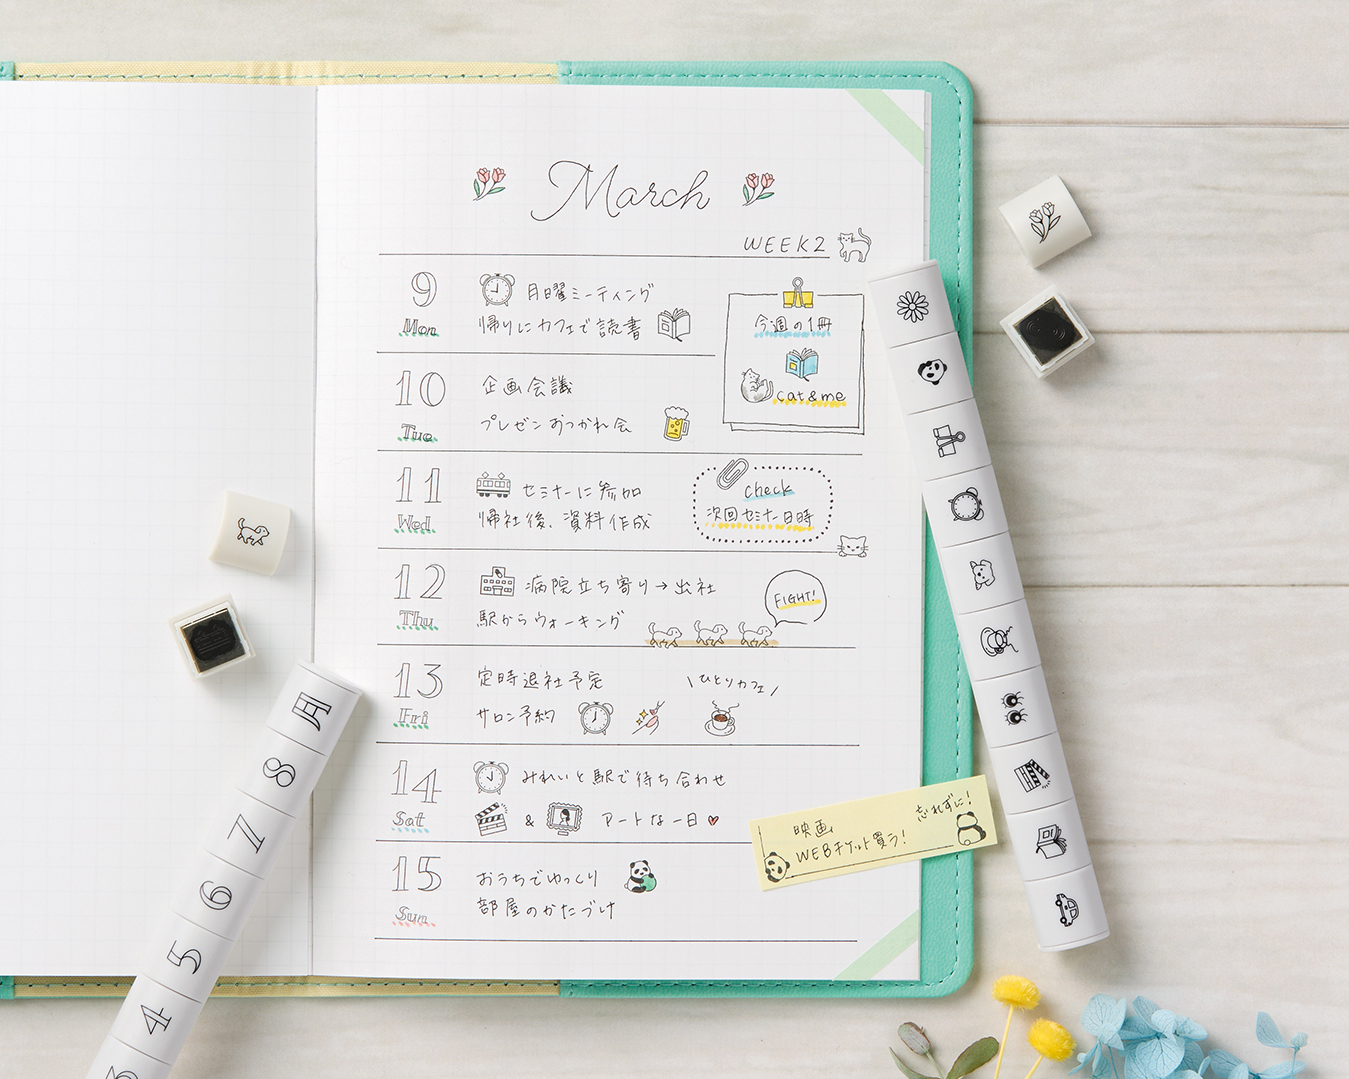 March
WEEK2
9
Mon
月曜ミーティング
帰りにカフェで読書
今週の1冊
cat&me
10
Tue
企画会議
プレゼンおつかれ会
11
Wed
セミナーに参加
帰社後、資料作成
check
次回セミナー日時
12
Thu
病院立ち寄り→出社
駅からウォーキング
FIGHT!
13
Fri
定時退社予定
サロン予約
\ひとりカフェ/
14
Sat
みれいと駅で待ち合わせ
&
アートな一日
15
Sun
おうちでゆっくり
部屋のかたづけ
忘れずに!
映画
WEBチケット買う!
月
8
7
6
5
4
3